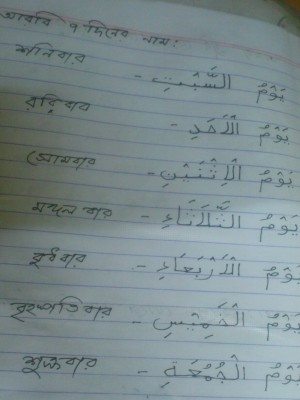 আরবি ৭ দিনের নাম:
শনিবার - يَوْمُ السَّبْتِ
রবিবার - يَوْمُ الْأَحَدِ
সোমবার - يَوْمُ الْإِثْنَيْنِ
মঙ্গলবার - يَوْمُ الثَّلَاثَاءِ
বুধবার - يَوْمُ الْأَرْبَعَاءِ
বৃহস্পতিবার - يَوْمُ الْخَمِيْسِ
শুক্রবার - يَوْمُ الْجُمُعَةِ